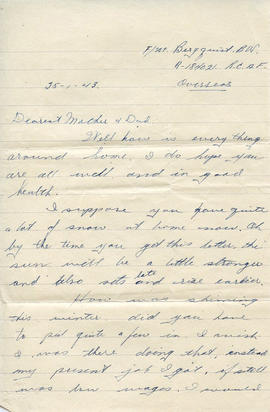 F/Sgt. Bergquist. B.W.
R-184021. R.C.A.F.
Overseas
25-1-43.
Dearest Mother & Dad.
Well how is everything
around home. I do hope you
are all well and in good
health.
I suppose you have quite
a lot of snow at home now. Oh
by the time you get this letter, the
sun will be a little stronger
and also sets late and rise earlier.
How was skinning
this winter did you have
to put quite a few in. I wish
I was there doing that, instead
my present job I got, if still
was low wages. I would